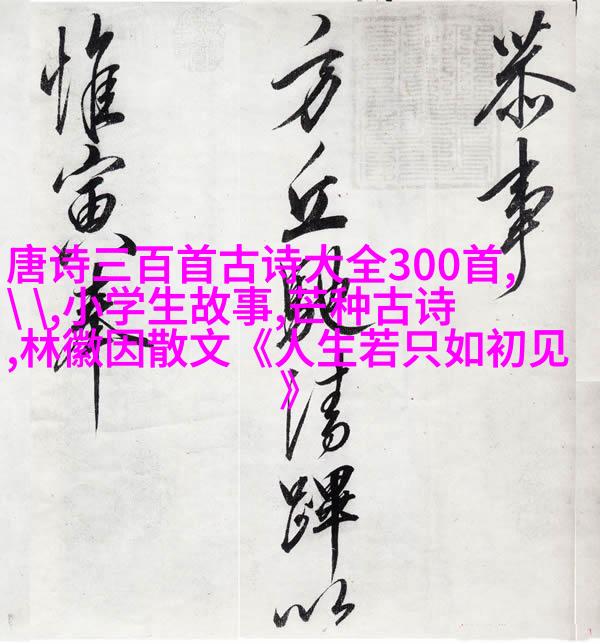 唐诗三百首古诗大全300首,
\ \,小学生故事,芒种古诗
,林徽因散文《人生若只如初见
》
恭事
方丘清蹕以
惟寅奉